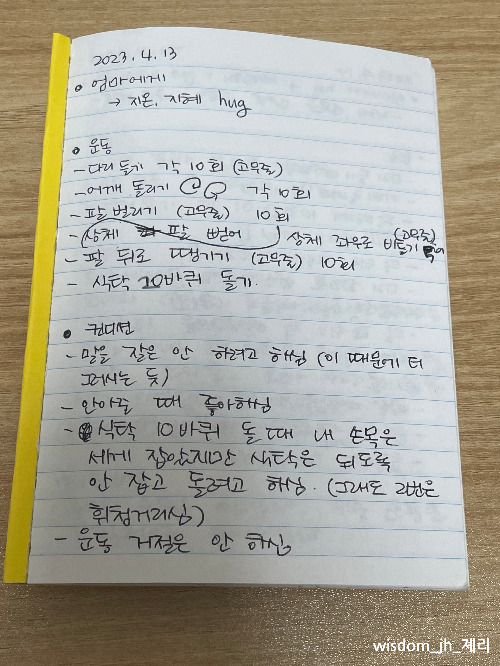 2023. 4. 13
• 엄마에게
→ 지온, 지혜 hug
• 운동
- 다리 들기 각 10회 (고무줄)
- 어깨 돌리기 각 10회
- 팔 벌리기 (고무줄) 10회
- 상체 팔 뻗어 상체 좌우로 비틀기 (고무줄)
- 팔 뒤로 땡기기 (고무줄) 10회
- 식탁 10바퀴 돌기.
• 컨디션
- 말을 잘은 안 하려고 하심 (이 때문에 더
그러시는 듯)
- 안아줄 때 좋아하심
- 식탁 10바퀴 돌 때 내 손목은
세게 잡았지만 식탁은 되도록
안 잡고 돌려고 하심. (그래도
휘청거리심)
- 운동 거절은 안 하심
wisdom_jh_제리